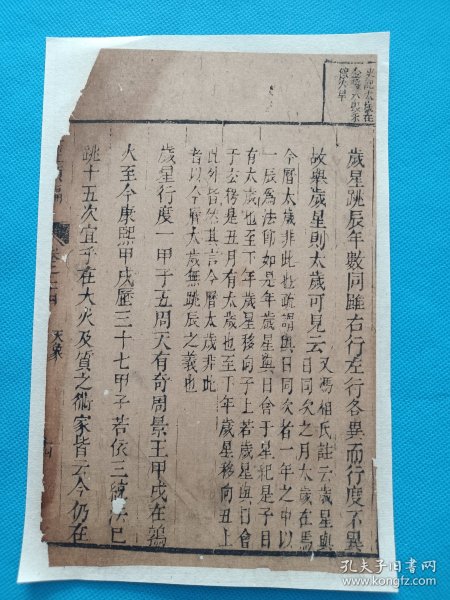 歲星跳辰年數同雖右行左行各異而行度不異
故舉歲星則太歲可見云
又馮相氏註云歲星與
日同次之月太歲在焉
今曆太歲非此也疏謂與日同次者一年之中以
一辰爲法節如是年歲星與日會于星紀是子月
有太歲也至下年歲星移向子上若歲星與日會
于玄枵是丑月有太歲也至下年歲星移向丑上
此外皆然其言今曆太歲非此
者以今曆太歲無跳辰之義也
歲星行度一甲子五周天有奇周景王甲戌在鶉
火至今康熙甲戌歷三十七甲子若依三統法已
跳十五次宜乎在大火及質之儒家皆云今仍在
天象
孔夫子旧书网
book.kongfz.com